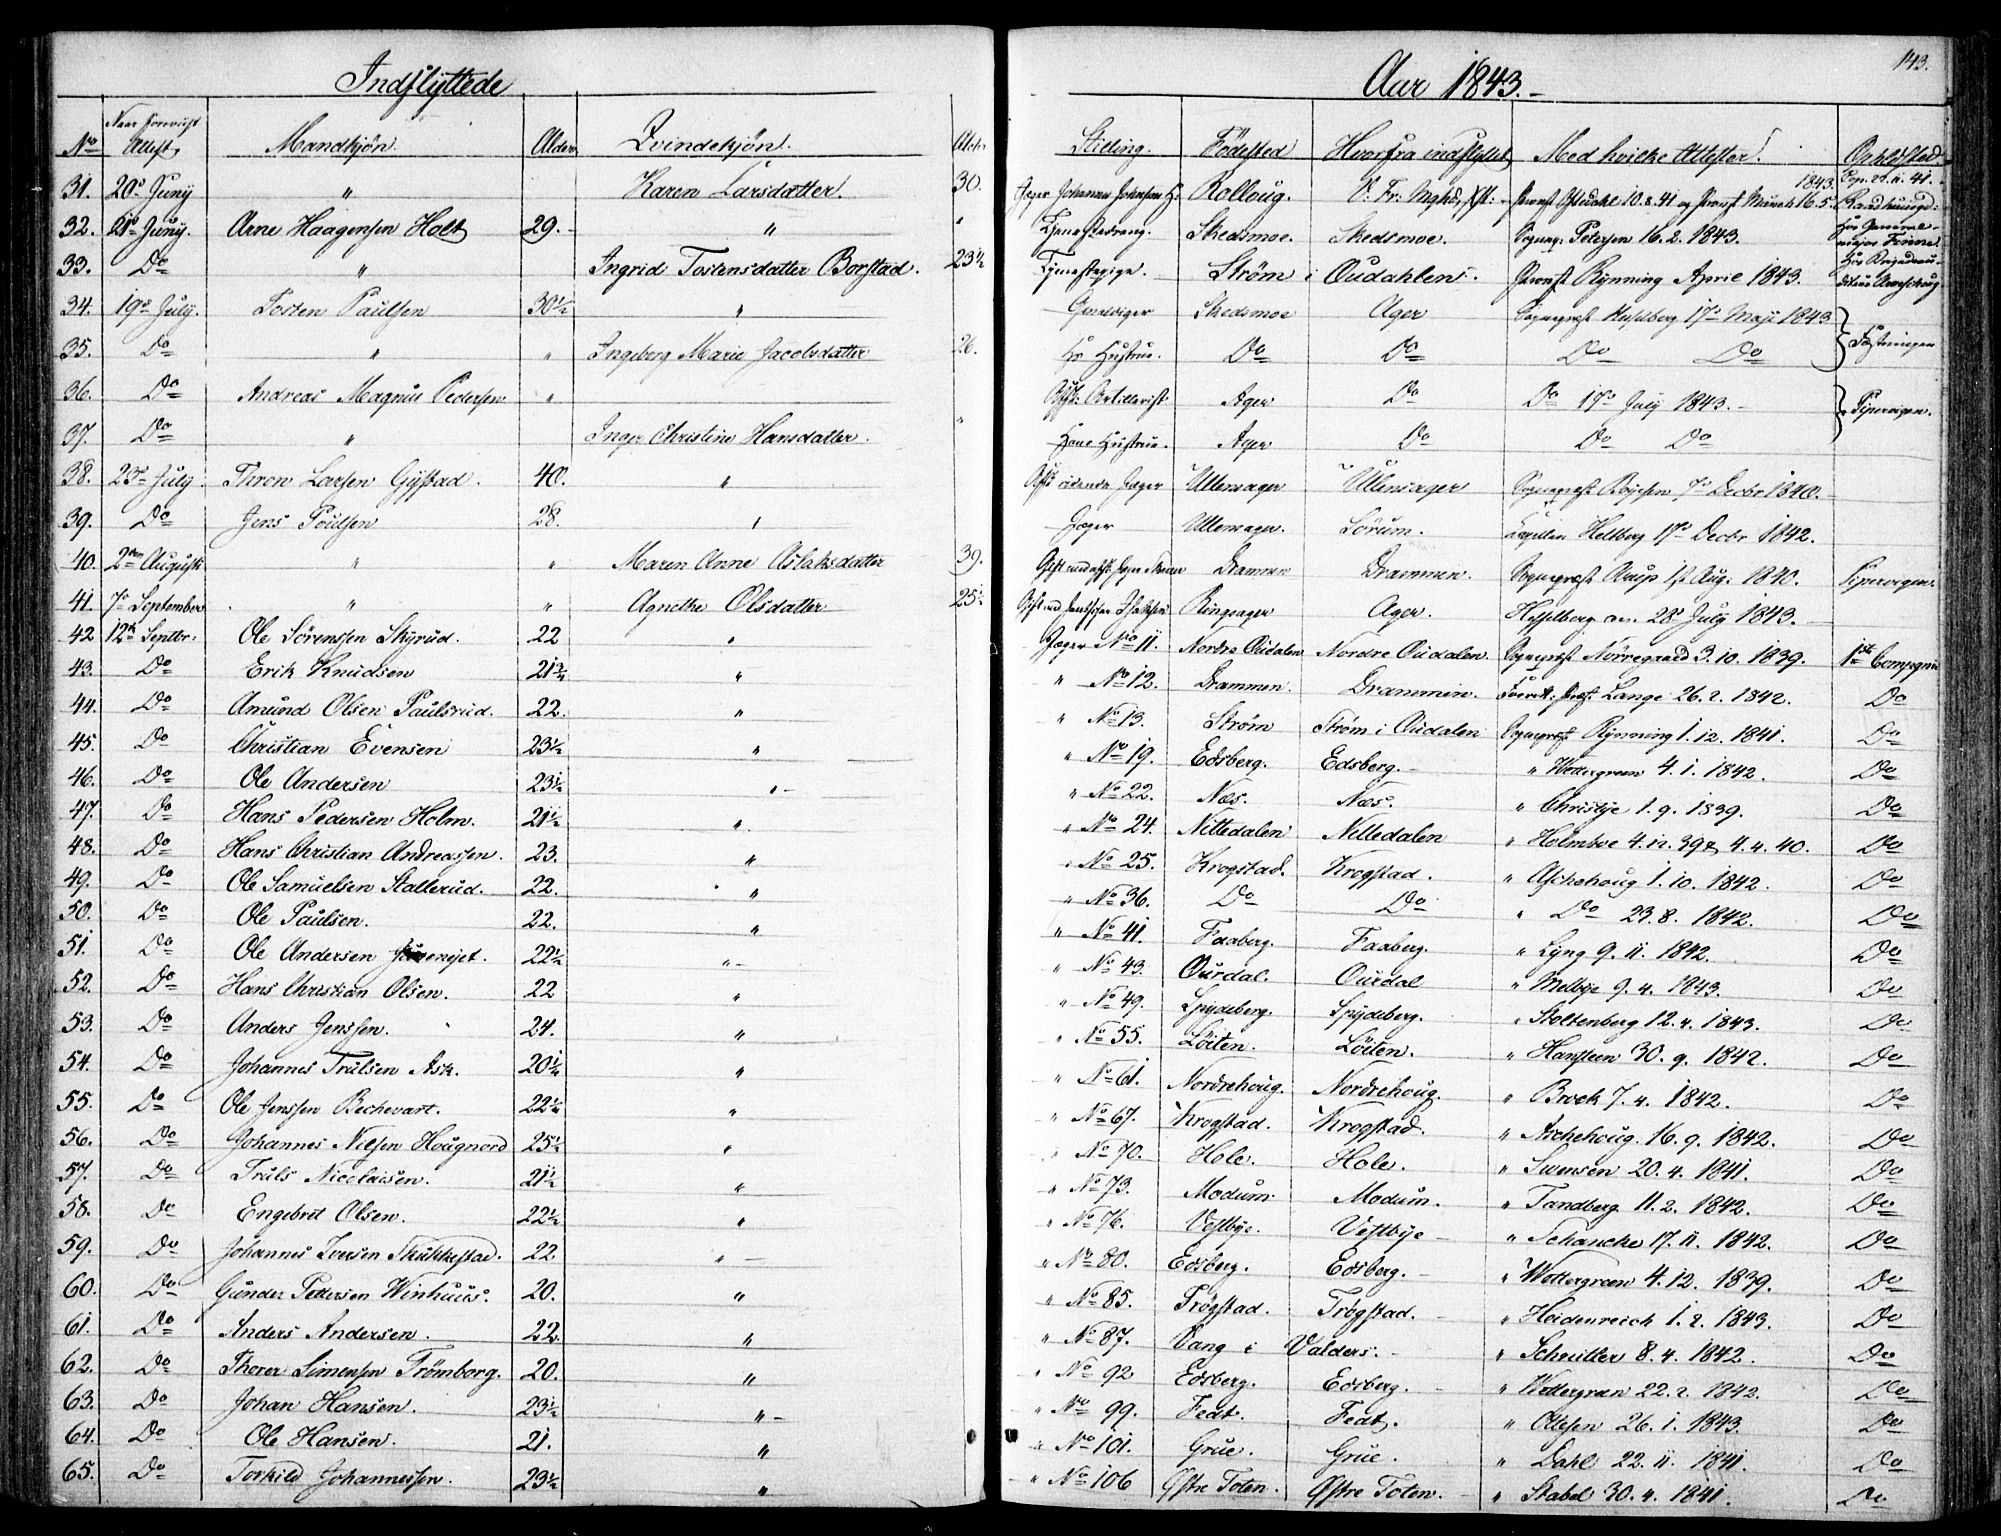 Indflyttede
Aar 1843.-
143.
No Naar forevist Attest Mandkjøn. Alder Qvindekjøn. Alder Stilling. Fødested Hvorfra indflyttet Med hvilke Attester. Opholdsted
31. 20de Juny " Karen Larsdatter. 30. Rolloug. 10.8.41 og 16.5. 1843.
32. 21de Juny. Arne Haagensen Holt 29.- " Skedsmoe. Skedsmoe. Petersen 16.2.1843.
33. Do " Ingrid Tostensdatter Borstad. 23½ Tjenestepige. Strøm i Oudahlen. Rynning April 1843.
34. 19de July. Tosten Paulsen 30½ " Skedsmoe Ager Hesselberg 17de Maji 1843 Fæstningen
35. Do " " Ingeberg Marie Jacobsdatter 26. Hs Hustrue. Do Do Do Do
36. Do Andreas Magnus Pedersen " Artillerist Ager Do Do 17de July 1843.- Pipervigen.
37. Do " Inger Christine Hansdatter. " Hans Hustrue. Ager Do Do Do
38. 23de July Thron Larsen Gystad. 40. " ridende Jæger Ullensager Ullensager Sognepræst Boysen 7de Decbr 1840.
39. Do Jens Poulsen 28. " Jæger Ullensager. Sørum. Capellan Heltberg 17de Decbr 1842.
40. 2den August " " Maren Anne Aslaksdatter 39. Drammen Drammen. Sognepræst Aarup 1st Aug: 1840. Pipervigen.
41. 7de September " " Agnethe Olsdatter 25½ Ringsager Ager. Hesselberg 28de July 1843.-
42 12te Septbr: Ole Sørensen Skyrud. 22 " Jæger No 11. Nordre Oudalen Nordre Oudalen. Sognepræst Nørregaard 3.10.1839. 1ste Compagni
43. Do Erik Knudsen 21¾ " " No 12. Drammen. Drammen. Lange 26.2.1842. Do
44. Do Amund Olsen Paulsrud. 22. " " No 13. Strøm Strøm i Oudalen Sognepræst Rynning 1.12.1841. Do
45. Do Christian Evensen 23½ " " No 19. Edsberg. Edsberg.- " Wettergreen 4.1.1842. Do
46. Do Ole Andersen 23½ "- " No 22. Næs. Næs. " Christie 1.9.1839. Do
47. Do Hans Pedersen Holm. 21½ " " No 24. Nittedalen Nittedalen " Holmboe 4.12.39 & 4.4.40. Do
48. Do Hans Christian Andreassen. 23. " " No 25. Krogstad. Krogstad. " Aschehoug 1.10.1842. Do
49. Do Ole Samuelsen Stallerud. 22. " " No 36. Do Do " Do 23.8.1842. Do
50. Do Ole Paulsen. 22. " " No 41. Faaberg. Faaberg. " Lyng 9.11.1842. Do
51. Do Ole Andersen 22½ "- " No 43. Ourdal. Ourdal " Melbye 9.4.1843. Do
52. Do Hans Christian Olsen. 22 " " No 49. Spydeberg. Spydeberg. " Stoltenberg 12.4.1843. Do
53. Do Anders Jenssen. 24. " " No 55. Löiten. Löiten. " Hansteen 30.9.1842. Do
54. Do Johannes Trulsen Ask. 20¼ " " No 61. Nordrehoug. Nordrehoug. " Brock 7.4.1842. Do
55. Do Ole Jenssen Bechevart. 22¼ " " No 67. Krogstad. Krogstad. " Aschehoug. 16.9.1842. Do
56. Do Johannes Nilsen Hougnord 25½ " " No 70. Hole. Hole. " Svensen 20.4.1841. Do
57. Do Truls Nicolaisen. 21½ " " No 73. Modum. Modum. " Tandberg 11.2.1842. Do
58. Do Engebret Olsen. 22½ " " No 76. Vestbye. Vestbye- " Schancke 17.11.1842. Do
59. Do Johannes Iversen 22. "- " No 80. Edsberg. Edsberg.- " Wettergreen 4.12.1839. Do
60. Do Gunder Pettersen Winhuus. 20. " " No 85. Trögstad. Trögstad. " Heidenreich 1.2.1843. Do
61. Do Anders Andersen. 22. " " No 87. Vang i Valders.- " Schnitler 8.4.1842. Do
62. Do Thorer Simensen Trömborg. 20. " " No 92 Edsberg. Edsberg.- " Wettergreen 22.2.1842. Do
63. Do Johan Hansen. 23½ "- " No 99. Fedt. Fedt. " Ottesen 26.1.1843. Do
64. Do Ole Hansen. 21. " " No 101. Grue. Grue. " Dahl 22.11.1841. Do
65. Do Torkild Johannessen. 23½ " " No 106 Østre Toten. Østre Toten.- " Stabel 30.4.1841. Do